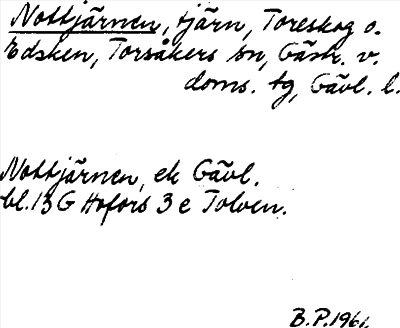 Nottjärnen, tjärn, Toreskog o.
Edsken, Torsåkers sn, Gästr. v.
doms. tg, Gävl. l.
Nottjärnen, ek Gävl.
bl. 13 G Hofors 3 e Tolven.
B.P. 1961.